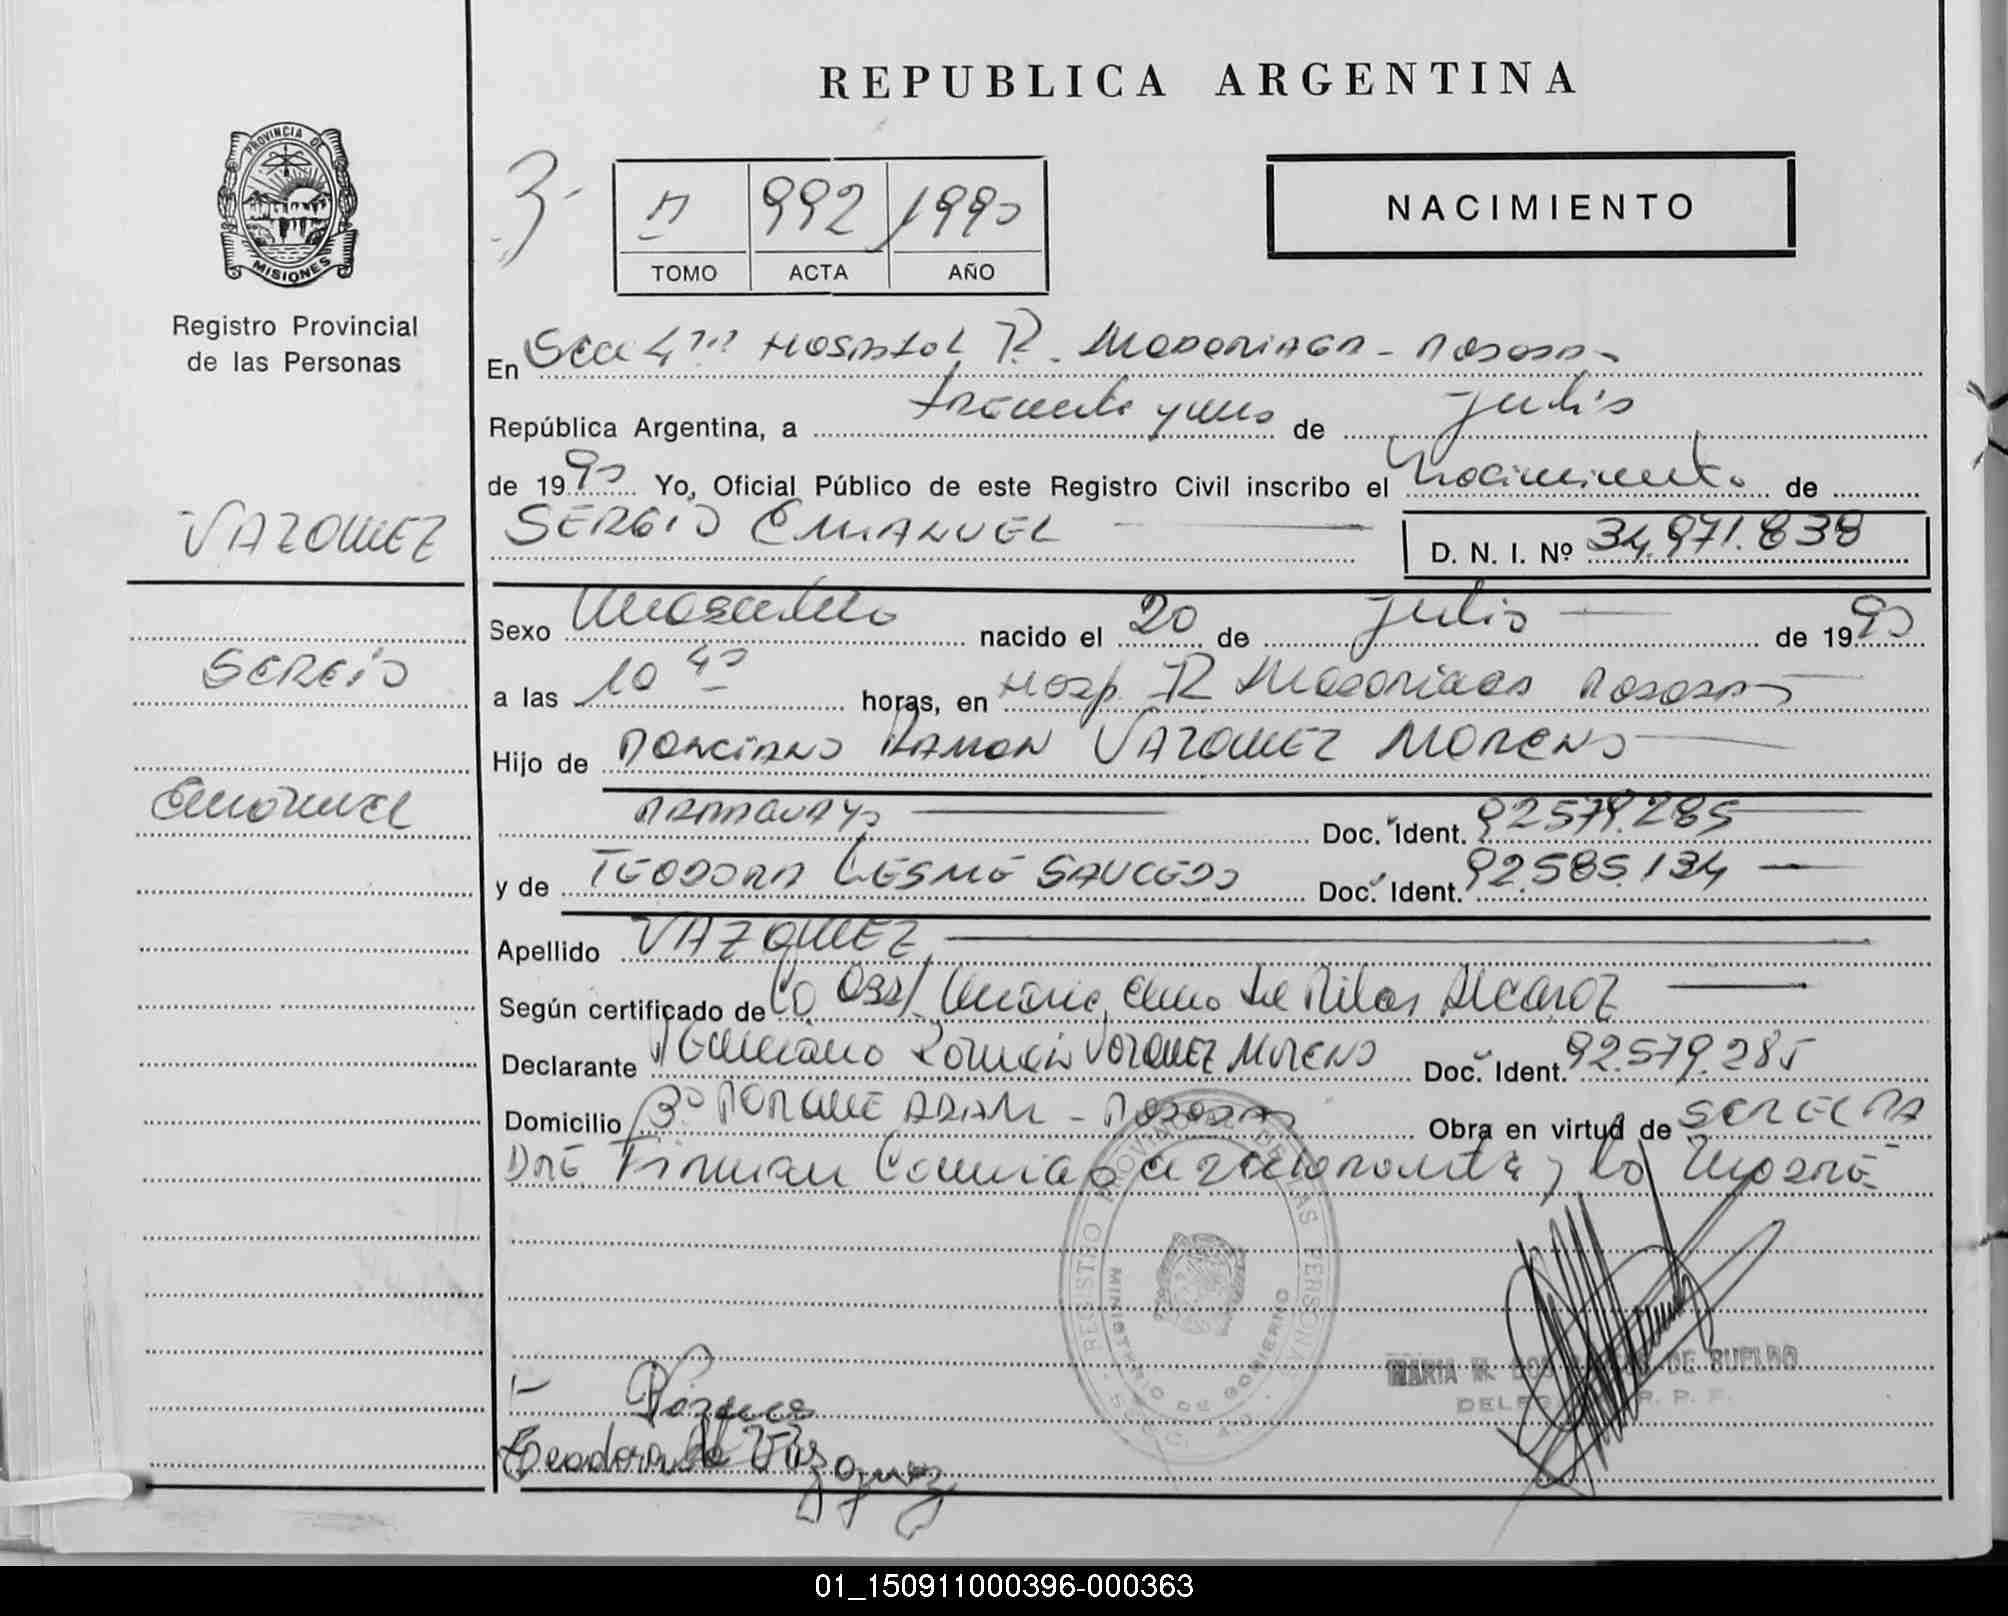 REPUBLICA ARGENTINA
PROVINCIA DE
MISIONES
Registro Provincial
de las Personas
3-
992 1990
TOMO ACTA AÑO
NACIMIENTO
En Secc 4ta Hospital R. Madariaga - Posadas
República Argentina, a treinta y uno de julio
de 1990 Yo, Oficial Público de este Registro Civil inscribo el Nacimiento de
VAZQUEZ
SERGIO EMANUEL
D. N. I. Nº 34.971.838
Sexo Masculino nacido el 20 de julio de 1990
SERGIO
a las 10 40 horas, en Hosp. R Madariaga Posadas
Hijo de Ramon VAZQUEZ MORENO
Emanuel
Paraguayo Doc. Ident. 92579.285
y de TEODORA LESME SAUCEDO Doc. Ident. 92.585.134
Apellido VAZQUEZ
Según certificado de la Obst. Maria del Pilar Alcaraz
Declarante Ramon Vazquez Moreno Doc. Ident. 92.579.285
Domicilio Bº Parque Adam - Posadas Obra en virtud de SER EL PA
DRE Firman la Madre
REGISTRO PROVINCIAL DE LAS PERSONAS
MINISTERIO DE GOBIERNO
MARIA DE SUELDO
R. P. P.
Teodora de Vazquez
01_150911000396-000363